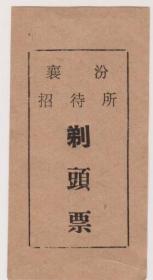 襄汾
招待所
剃頭票